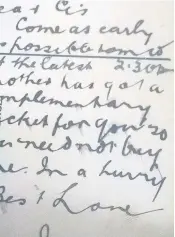 ear Cis
Come as early
s possible to
t the latest 2.30
nother has got a
mplementary
icket for you so
u need not buy
ne. In a hurry
Best Love